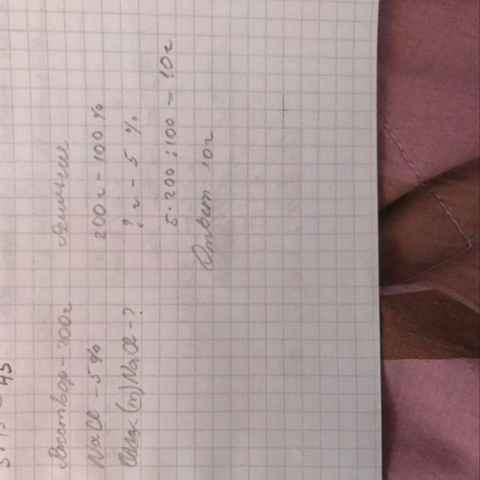 Раствор - 200г Решение
NaCl - 5% 200г - 100%
(m) NaCl - ? ? г - 5 %
5 · 200 : 100 - 10г
Ответ 10г